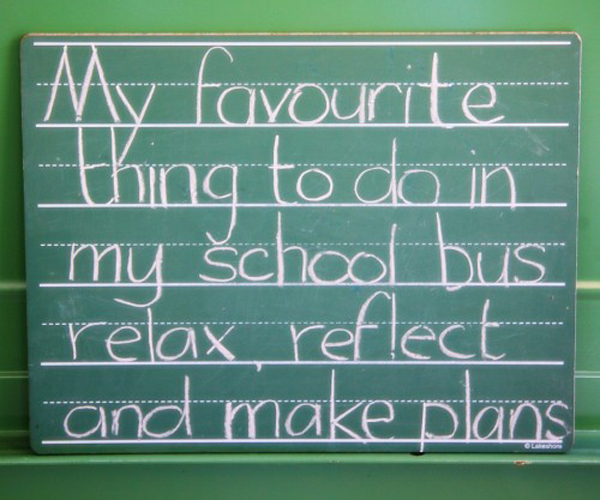 My favourite
thing to do in
my school bus
relax, reflect
and make plans
© Lakeshore